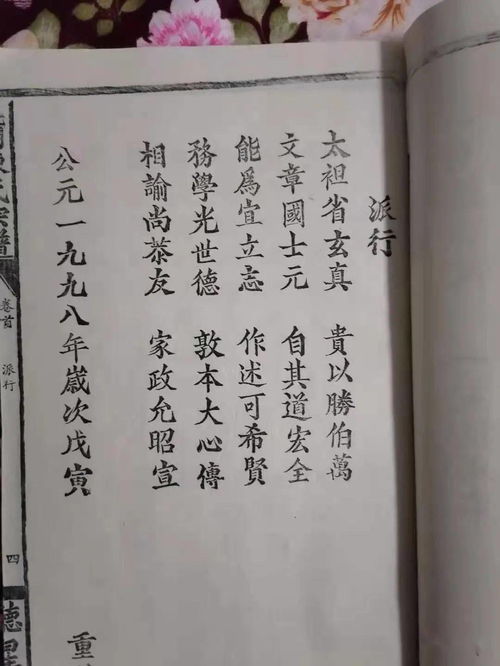 派行
太袓省玄真 貴以勝伯萬
文章國士元 自其道宏全
能為宜立志 作述可希賢
務學光世德 敦本大心傳
相諭尚恭友 家政允昭宣
公元一九九八年歲次戊寅
重
氏宗譜
卷首 派行
四
德